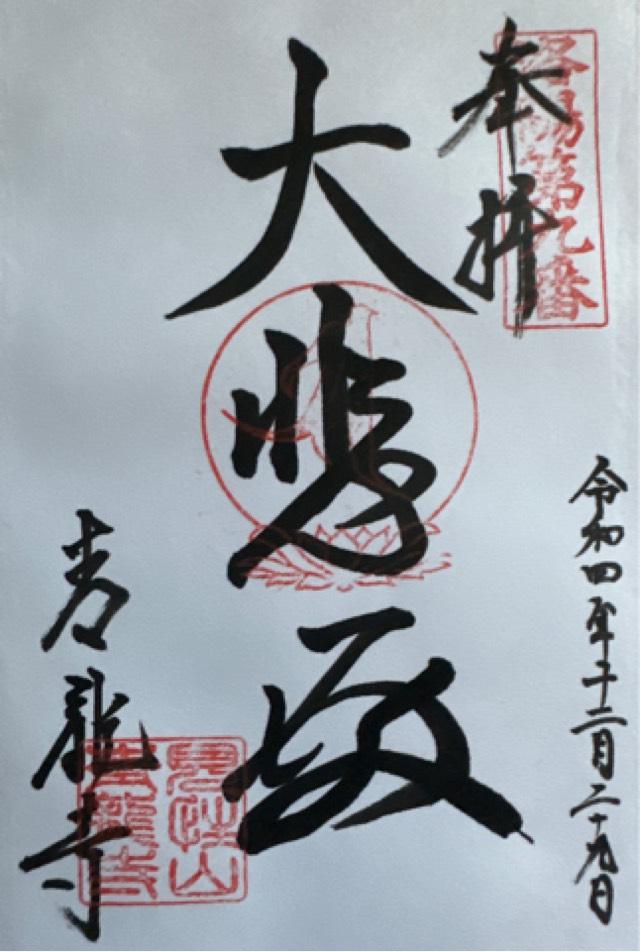 洛陽第九番
奉拝
令和四年十二月二十九日
大悲殿
青龍寺
見性山
青龍寺